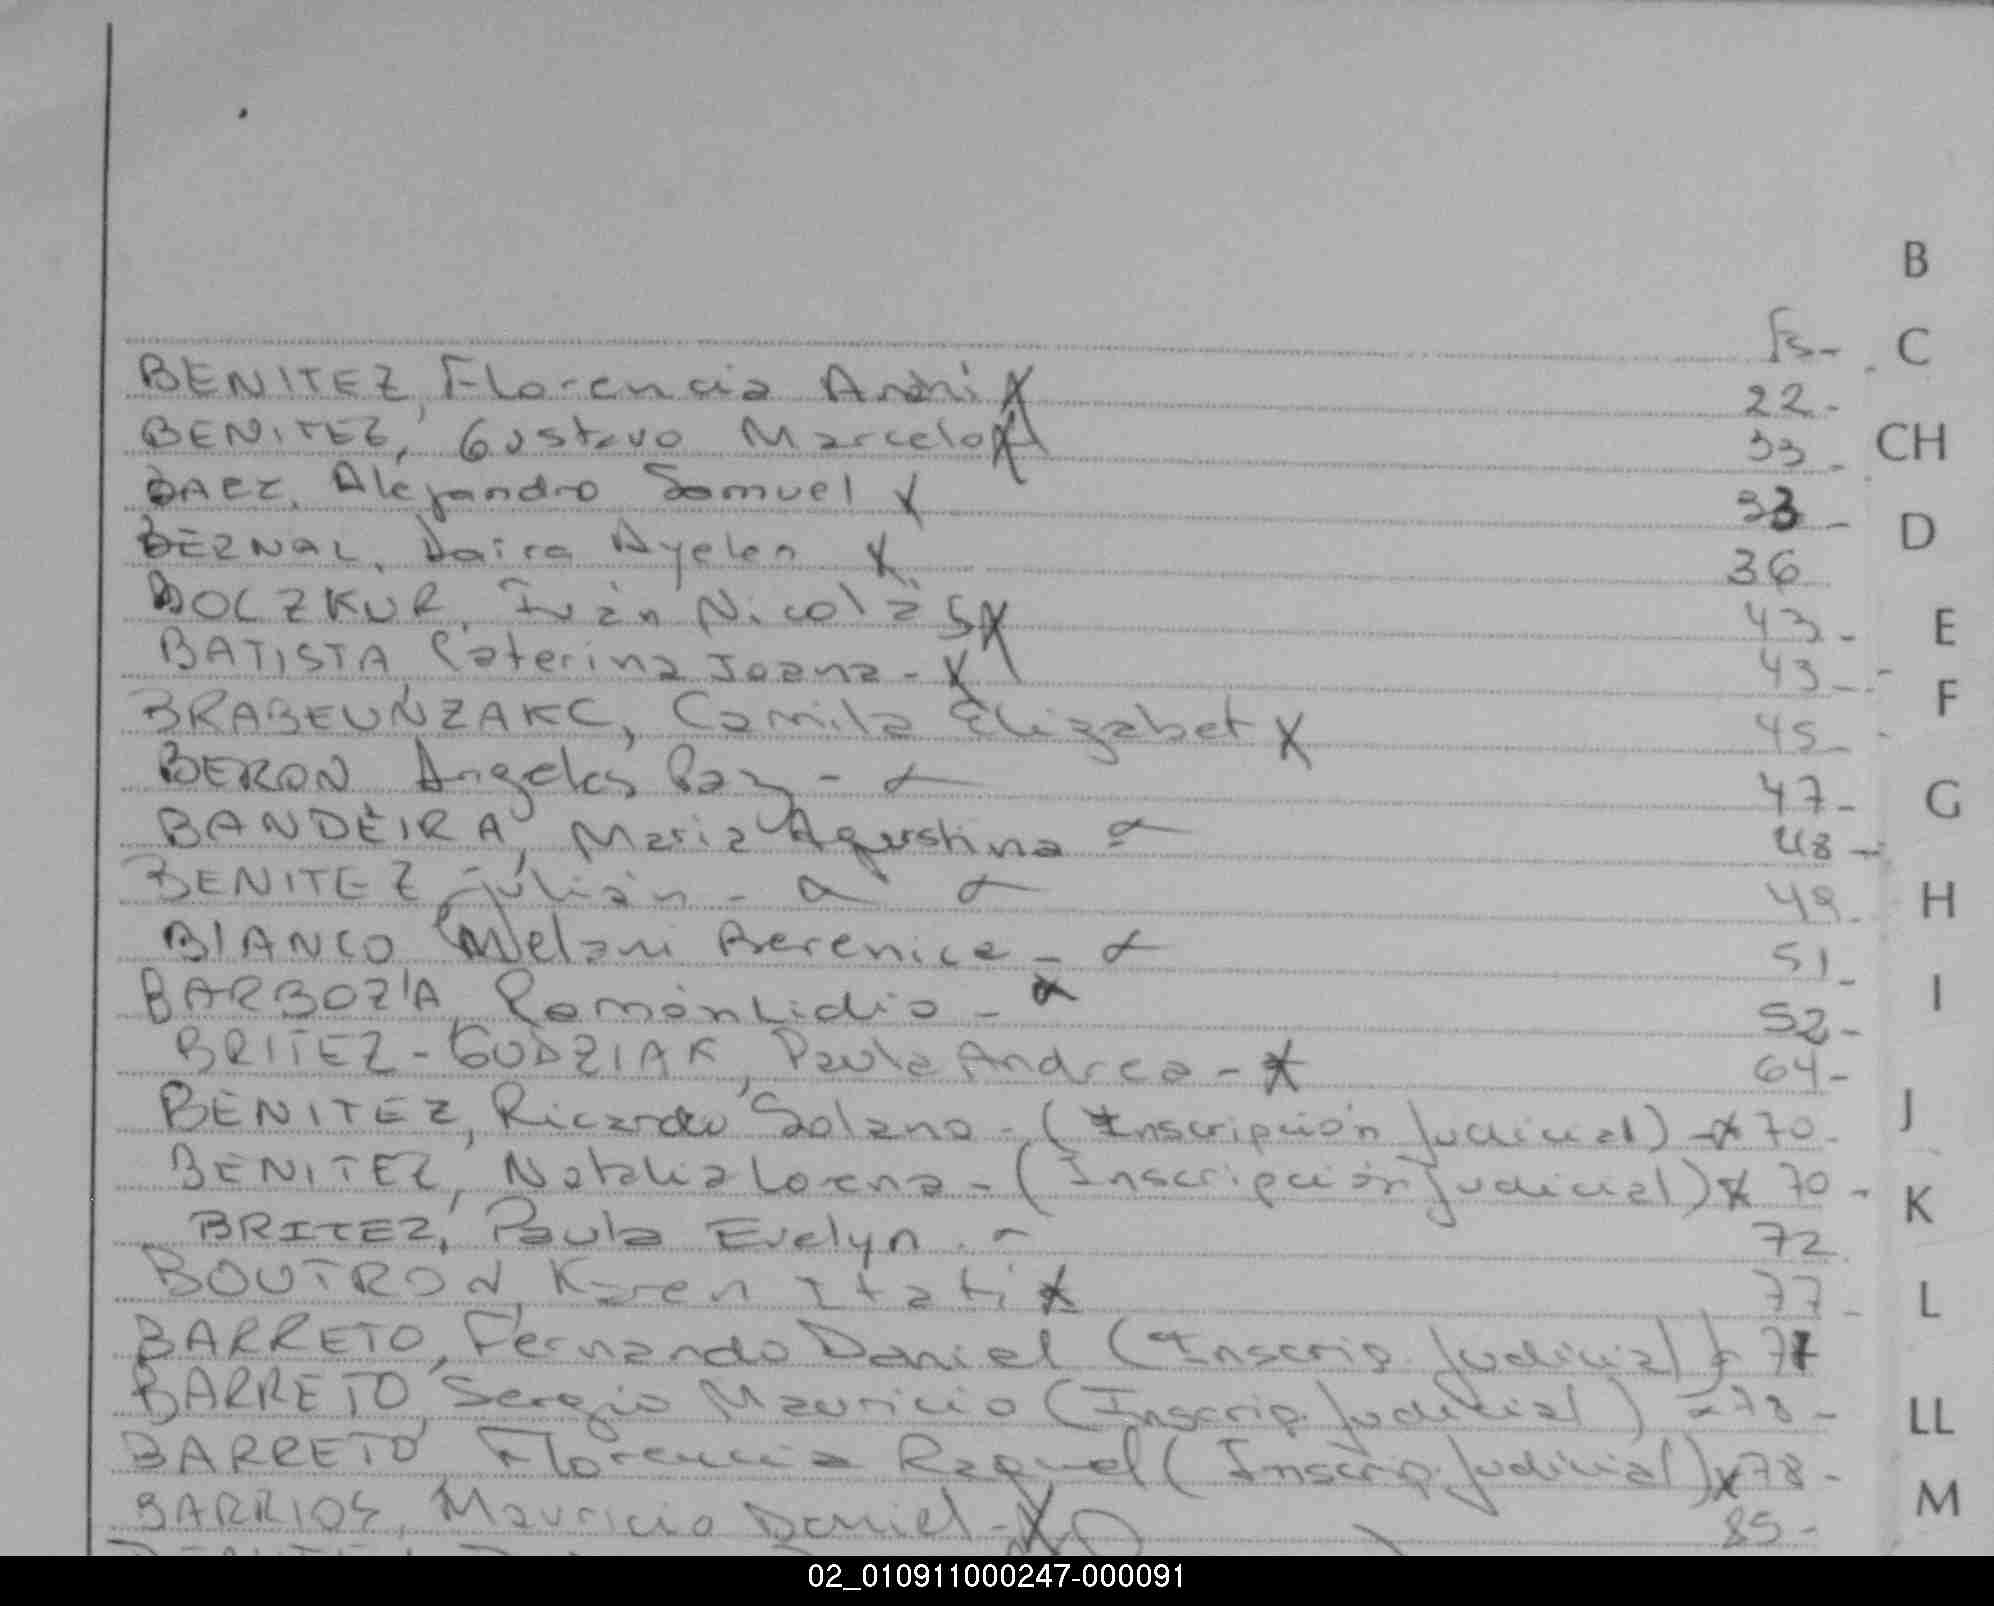 B
Fs-
C
BENITEZ, Florencia Anahi X 22-
BENITEZ, Gustavo Marcelo X 33-
CH
BAEZ, Alejandro Samuel X 33-
D
BERNAL, Daira Ayelen X 36
BOLCZKUR, Iván Nicolás X 43-
E
BATISTA, Caterina Joana-X 43-
F
Camila Elizabet X 45-
BERON Angeles Paz - 47-
G
BANDEIRA, Maria Agustina 48-
BENITEZ, Julián - 49-
H
BIANCO Melani Berenice - 51-
I
BARBOZA, Ramón Lidio - 52-
BRITEZ-GUDZIAK, Paula Andrea - X 64-
J
BENITEZ, Ricardo Solano - (Inscripción Judicial) - X 70-
BENITEZ, Natalia Lorena - (Inscripción Judicial) X 70-
K
BRITEZ, Paula Evelyn. 72
BOUTRON, Karen Itati X 77-
L
BARRETO, Fernando Daniel (Inscrip. Judicial) 77
BARRETO, Sergio Mauricio (Inscrip. Judicial) 78-
LL
BARRETO, Florencia Raquel (Inscrip. Judicial) X 78-
M
BARRIOS, Mauricio Daniel-X 85-
02_010911000247-000091